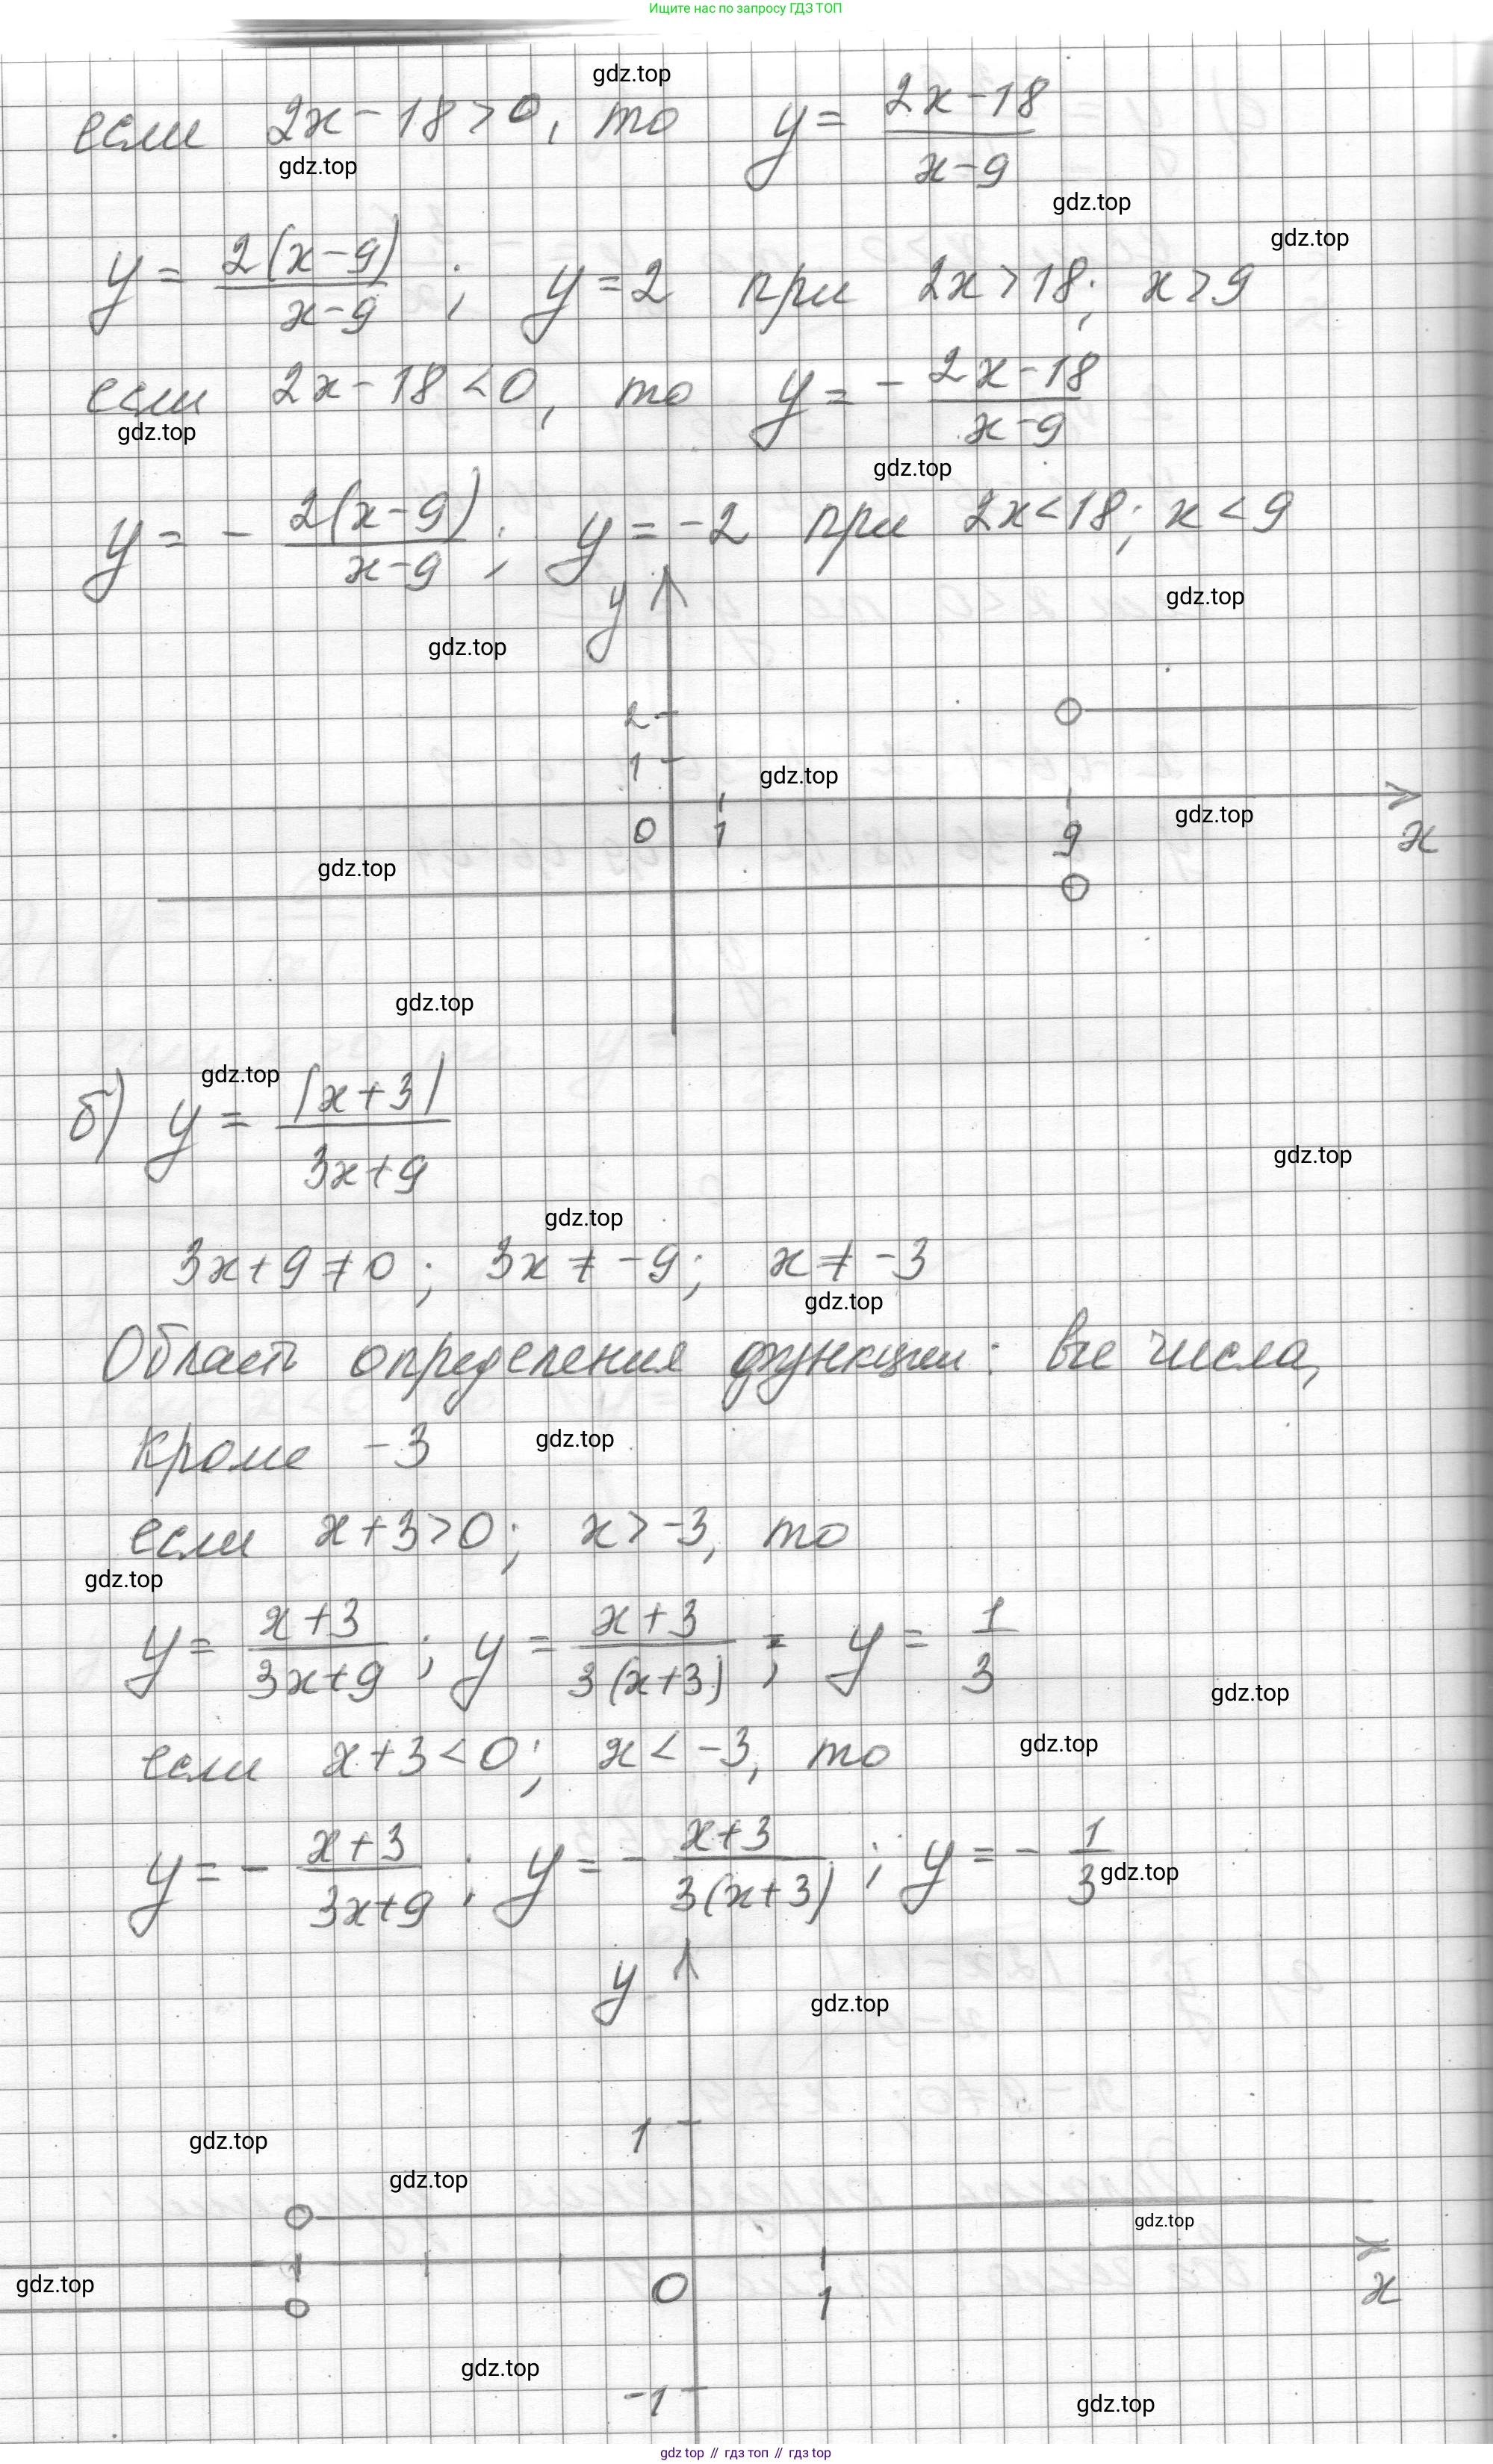 Ищите нас по запросу ГДЗ ТОП
gdz.top
если 2x-18>0, то y = \frac{2x-18}{x-9}
gdz.top
gdz.top
gdz.top
y = \frac{2(x-9)}{x-9}; y=2 при 2x>18; x>9
если 2x-18<0, то y = - \frac{2x-18}{x-9}
gdz.top
gdz.top
y = - \frac{2(x-9)}{x-9}; y=-2 при 2x<18; x<9
gdz.top
y
gdz.top
2
1
gdz.top
gdz.top
0 1 9 x
gdz.top
gdz.top
gdz.top
б) y = \frac{|x+3|}{3x+9}
gdz.top
gdz.top
3x+9≠0; 3x≠-9; x≠-3
gdz.top
Область определения функции: все числа,
кроме -3
gdz.top
если x+3>0; x>-3, то
gdz.top
y = \frac{x+3}{3x+9}; y = \frac{x+3}{3(x+3)}; y = \frac{1}{3}
gdz.top
gdz.top
если x+3<0; x<-3, то
y = - \frac{x+3}{3x+9}; y = - \frac{x+3}{3(x+3)}; y = - \frac{1}{3}
gdz.top
y
gdz.top
1
gdz.top
gdz.top
gdz.top
gdz.top
0 1 x
gdz.top
-1
gdz.top
gdz top // гдз топ // гдз top